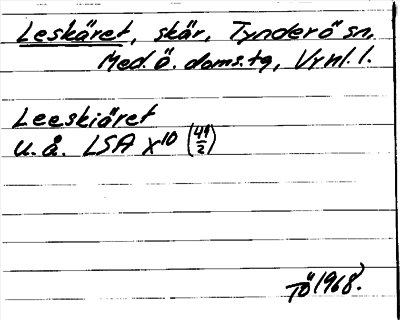 Leskäret, skär, Tynderö sn.
Med. Ö. doms.tg, Vrnl. l.
Leeskiäret
u. å. LSA X10 (49/2)
TÖ 1968.